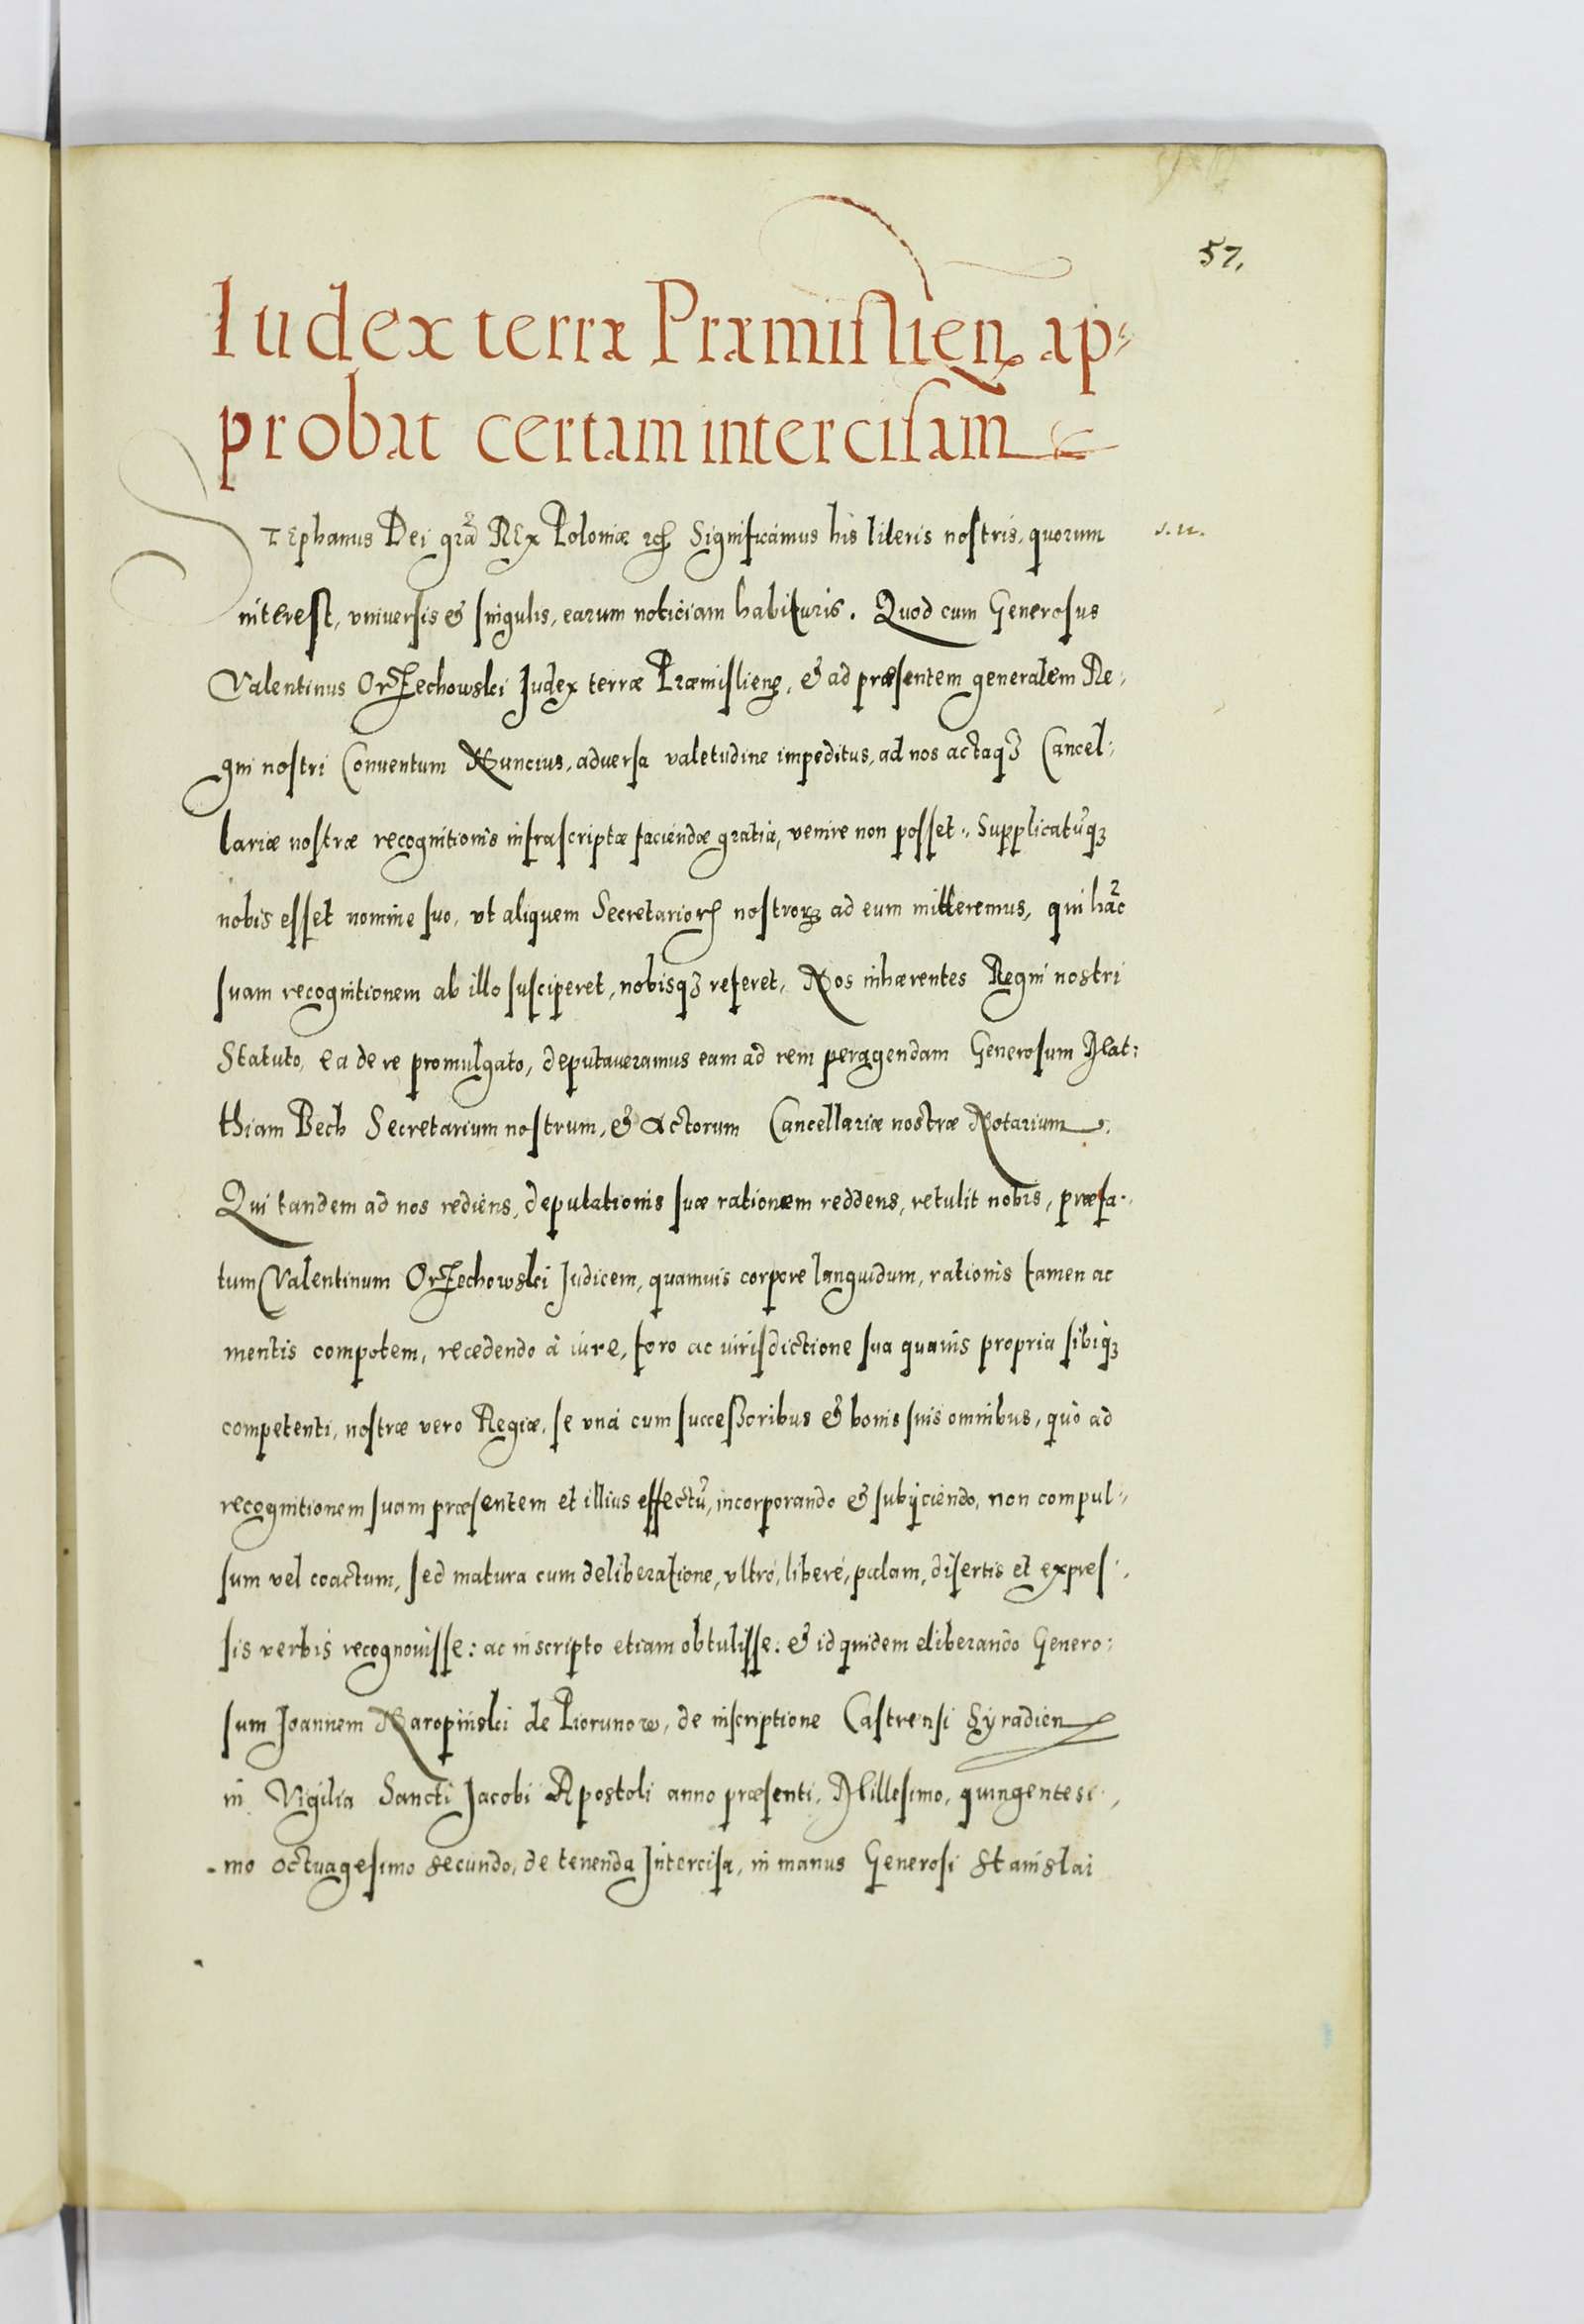 57,
Iudex terræ Præmislien̄ ap⸗
probat certam intercisam
STEphanus Dei gr̃a REx Poloniæ ꝛc̃ Significamus his literis nostris, quorum
interest, vniversis & singulis, earum noticiam habituris. Quod cum Generosus
Valentinus Orzechowski Iudex terræ Præmislien̄, & ad præsentem generalem Re⸗
gni nostri Conuentum Nuncius, adversa valetudine impeditus, ad nos actaqꝫ Cancel⸗
lariæ nostræ recognitionis infrascriptæ faciendæ gratia, venire non posset. Supplicatũqꝫ
nobis esset nomine suo, vt aliquem Secretarioꝝ nostroꝝ ad eum mitteremus, qui hãc
suam recognitionem ab illo susciperet, nobisqꝫ referet, Nos inhærentes Regni nostri
Statuto, ea de re promulgato, deputaveramus eam ad rem peragendam Generosum Mat⸗
thiam Bech Secretarium nostrum, & Actorum Cancellariæ nostræ Notarium.
Qui tandem ad nos rediens, deputationis suæ rationem reddens, retulit nobis, præfa⸗
tum Valentinum Orzechowski Iudicem, quamuis corpore languidum, rationis tamen ac
mentis compotem, recedendo à iure, foro ac iurisdictione sua quauis propria sibiqꝫ
competenti, nostræ vero Regiæ, se vna cum successoribus & bonis suis omnibus, quò ad
recognitionem suam præsentem et illius effectũ, incorporando & subijciendo, non compul⸗
sum vel coactum, sed matura cum deliberatione, vltro, liberè, palam, disertis et expres⸗
sis verbis recognouisse: ac in scripto etiam obtulisse. & id quidem eliberando Genero⸗
sum Joannem Naropiński de Piorunow, de inscriptione Castrensi Syradien̄
in Vigilia Sancti Jacobi Apostoli anno præsenti, Millesimo, quingentesi⸗
mo octuagesimo secundo, de tenenda Intercisa, in manus Generosi Stanislai